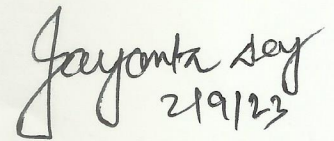 Jayanta Dey
2/9/23